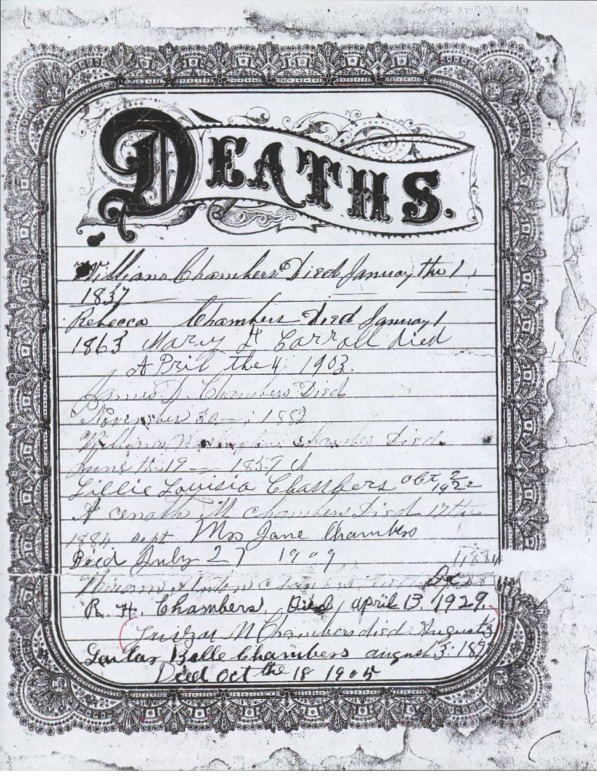 DEATHS.
William Chambers Died January the 1,
1837
Rebecca Chambers Died January 1
1863 Mary F Carroll died
April the 4, 1903.
James J. Chambers Died
November 30 1882
William Chambers Died
June 19 1859
Lillie Louisia Chambers Oct 2 1922
M Chambers Died 17th
1884 Sept Mrs Jane Chambers
Died July 27 1909
R. H. Chambers, Died, april 13, 1929,
N Chambers died August
Belle Chambers august 3. 189
Died Oct the 18 1905